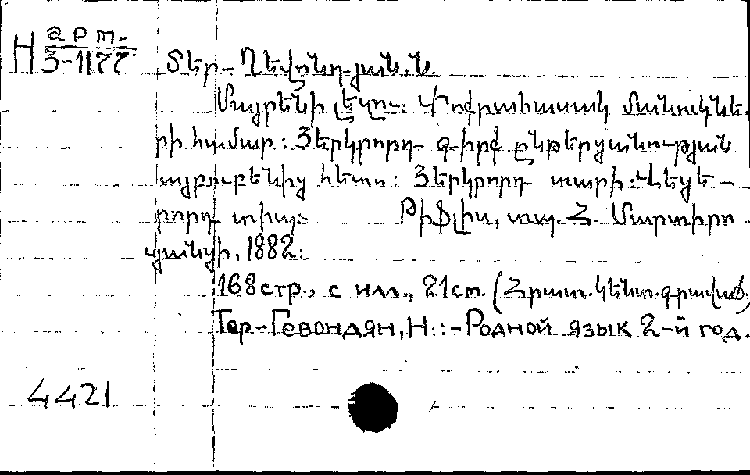 Н арт.
3-1177
Տեր-Ղեվոնդյան, Ն
Մայրենի լեզու: Փոքրահասակ մանուկնե-
րի համար: Յերկրորդ գիրք ընթերցանության
այբուբենից հետո: Յերկրորդ տարի: Վեցե-
րորդ տիպ: Թիֆլիս, տպ. Հ. Մարտիրո-
սյանցի, 1882:
168 стр., с илл., 21 см. (Հրատ. կենտ. գրավաճ.)
Тер-Гевондян, Н.:- Родной язык 2-й год.
4421